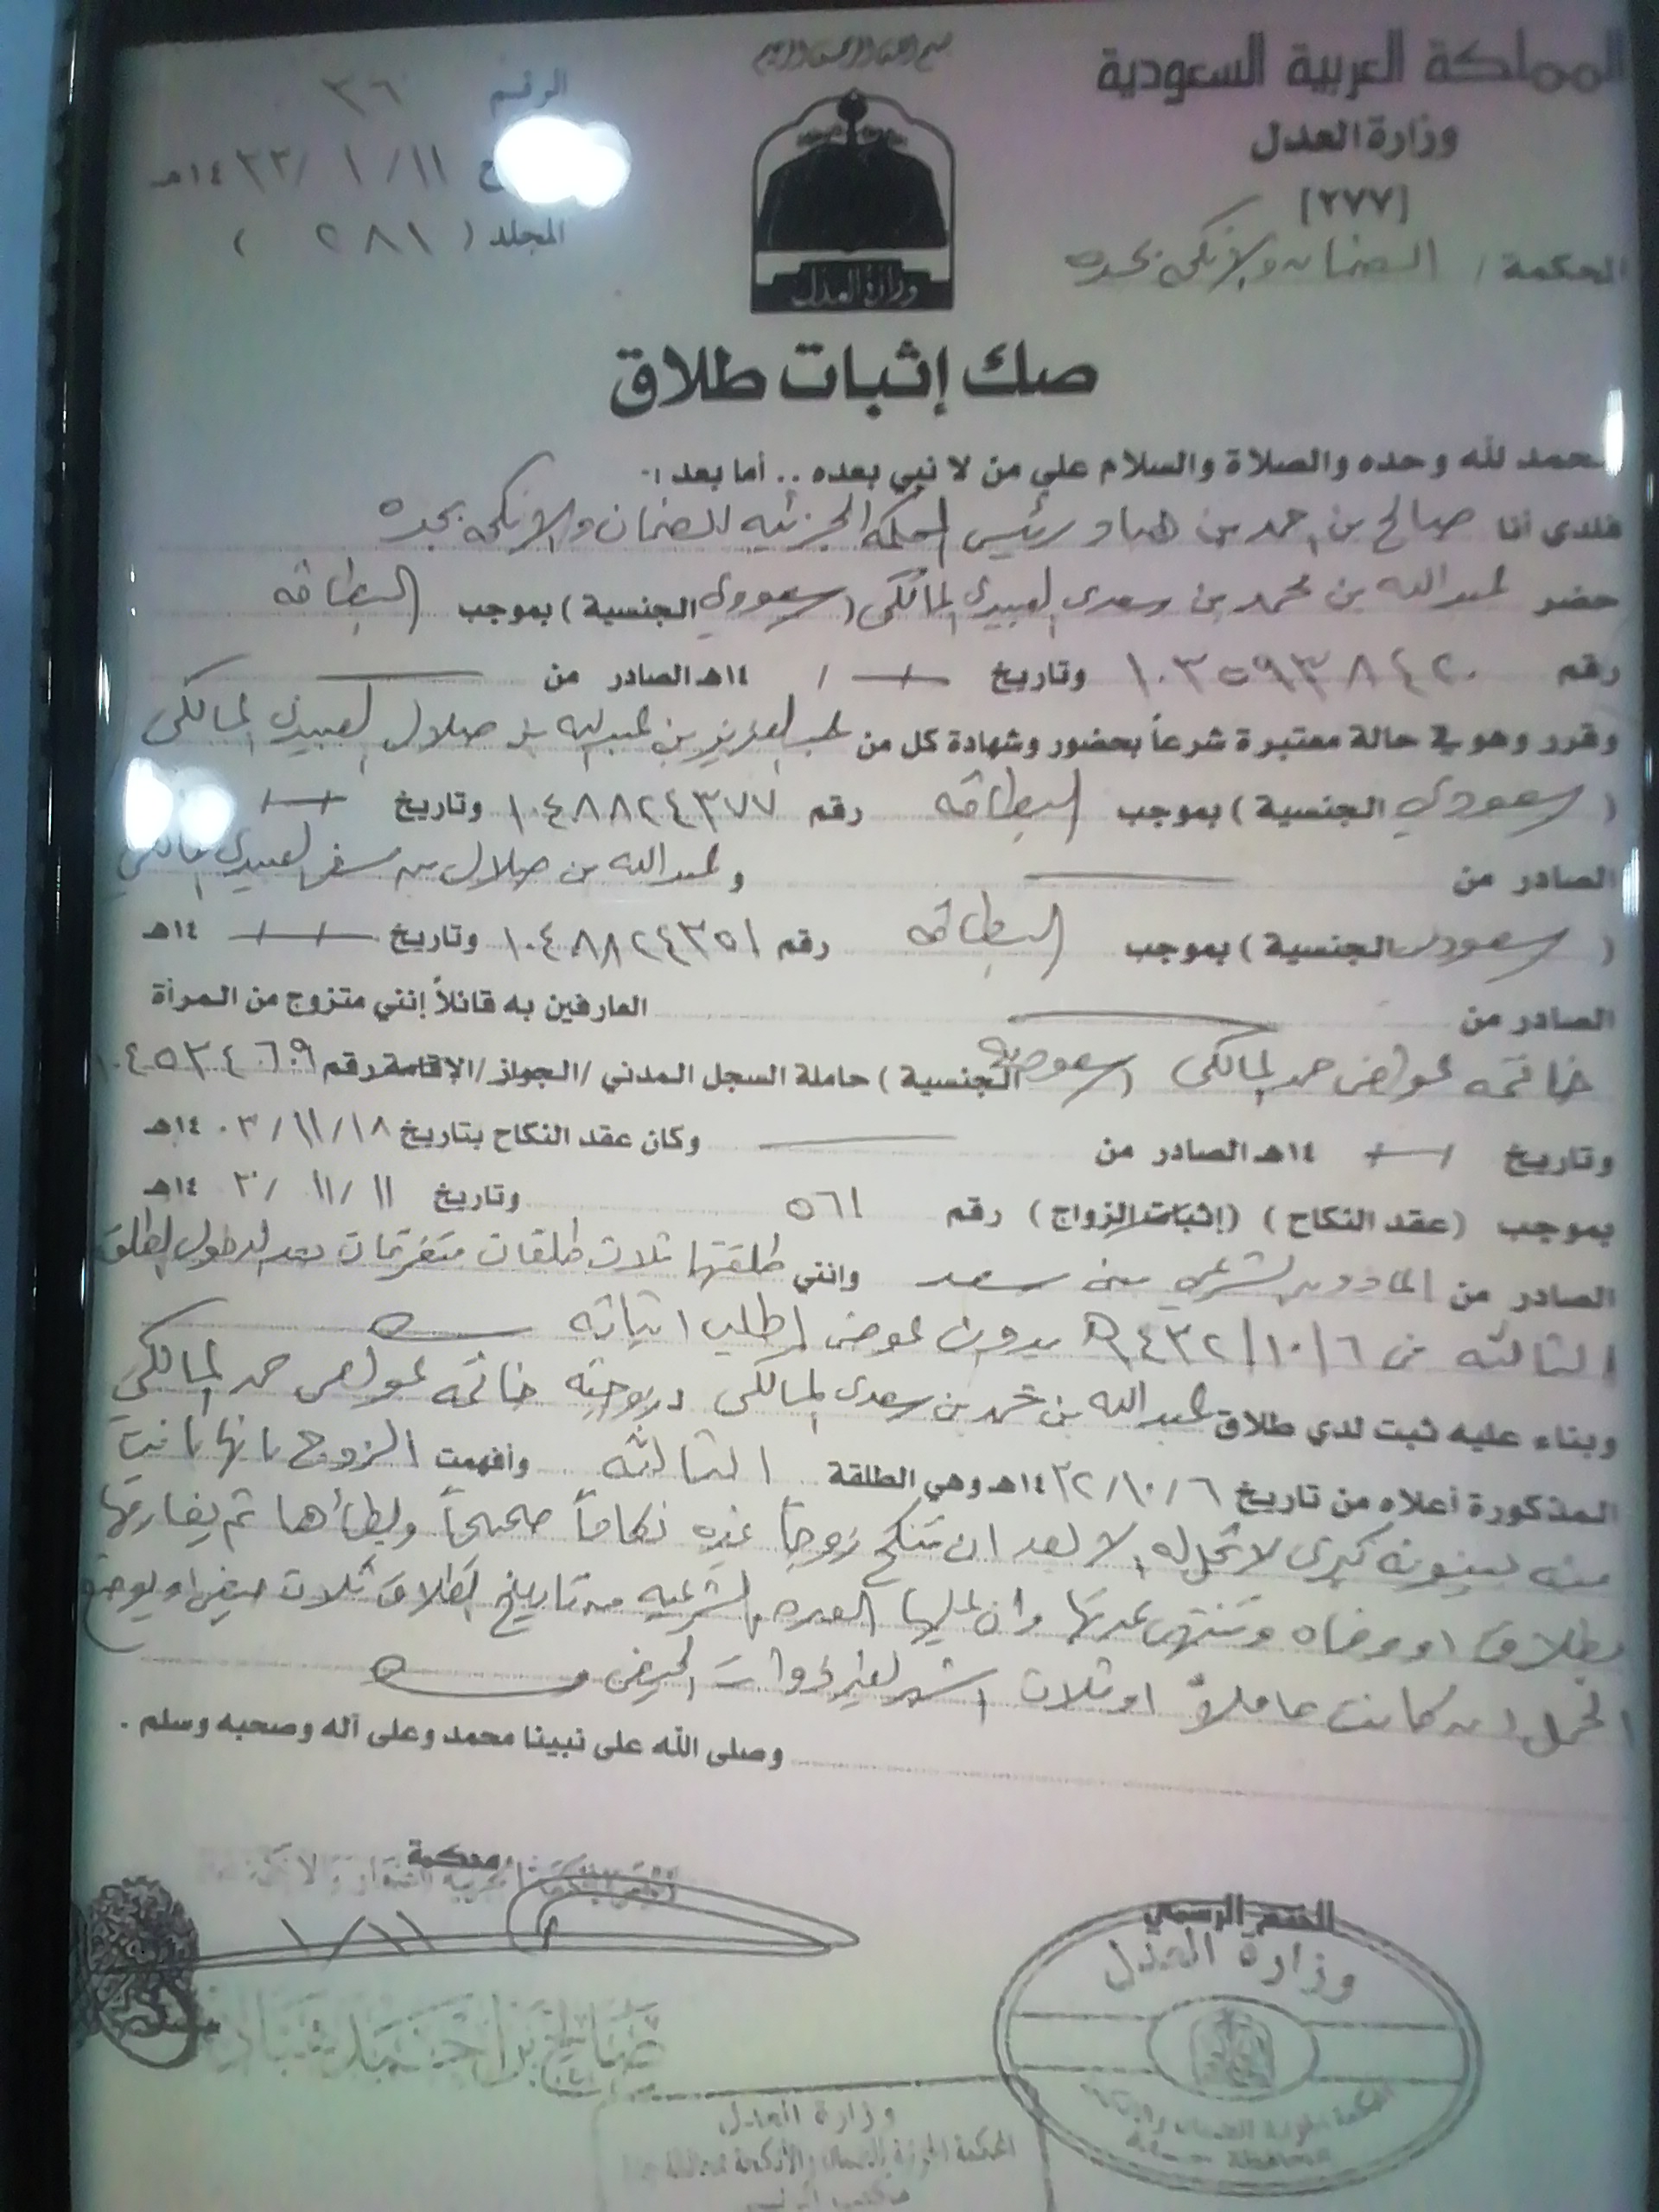 بسم الله الرحمن الرحيم
المملكة العربية السعودية
وزارة العدل
[٢٧٧]
المحكمة / الضمان والانكحه بجده
الرقم ٣٦
١٤٣٣/١/١١هـ
المجلد ( ٢٨١ )
وزارة العدل
صك إثبات طلاق
الحمد لله وحده والصلاة والسلام على من لا نبي بعده .. أما بعد :-
فلدي أنا صالح بن احمد بن هباد رئيس المحكمه الجزئيه للضمان والانكحه بجده
حضر عبدالله بن محمد بن سعدى العبيدي المالكي ( سعودي الجنسية ) بموجب البطاقه
رقم ١٠٣٥٩٣٨٤٢٠ وتاريخ / / ١٤هـ الصادر من
وقرر وهو في حالة معتبرة شرعاً بحضور وشهادة كل من عبدالعزيز بن عبدالله بن صلال العبيدي المالكي
( سعودي الجنسية ) بموجب البطاقه رقم ١٠٤٨٨٢٤٣٧٧ وتاريخ / /
الصادر من وعبدالله بن صلال بن سفر العبيدي المالكي
( سعودي الجنسية ) بموجب البطاقه رقم ١٠٤٨٨٢٤٣٥١ وتاريخ / / ١٤هـ
الصادر من العارفين به قائلاً إنني متزوج من المرأة
خاتمه عواض حمد المالكي ( سعوديه الجنسية ) حاملة السجل المدني /الجواز/الإقامة رقم ١٠٤٥٣٤٦٠٩
وتاريخ / / ١٤هـ الصادر من وكان عقد النكاح بتاريخ ١٤٠٣/١١/١٨هـ
بموجب (عقد النكاح) (إثبات الزواج) رقم ٥٦١ وتاريخ ١٤٠٣/١١/١١هـ
الصادر من الماذون الشرعي ببني سعد وانني طلقتها ثلاث طلقات متفرقات بعد الدخول الطلقه
الثالثه في ١٤٣٢/١٠/٦هـ بدون عوض اطلب اثباته
وبناء عليه ثبت لدي طلاق عبدالله بن محمد بن سعدى المالكي لزوجته خاتمه عواض حمد المالكي
المذكورة أعلاه من تاريخ ١٤٣٢/١٠/٦هـ وهي الطلقة الثالثه وأفهمت الزوج بانها بانت
منه بينونه كبرى لا تحل له الا بعد ان تنكح زوجاً غيره نكاحاً صحيحاً ويطأها ثم يفارقها
بطلاق او وفاه وتنتهي عدتها وان عليها العده الشرعيه من تاريخ الطلاق ثلاث حيض او بوضع
الحمل ان كانت حاملاً او ثلاث اشهر لغير ذوات الحيض
وصلى الله على نبينا محمد وعلى آله وصحبه وسلم .
محكمة
١/١١
الختم الرسمي
وزارة العدل
وزارة العدل
المحكمة الجزئية للضمان والأنكحة
مكتب الرئيس